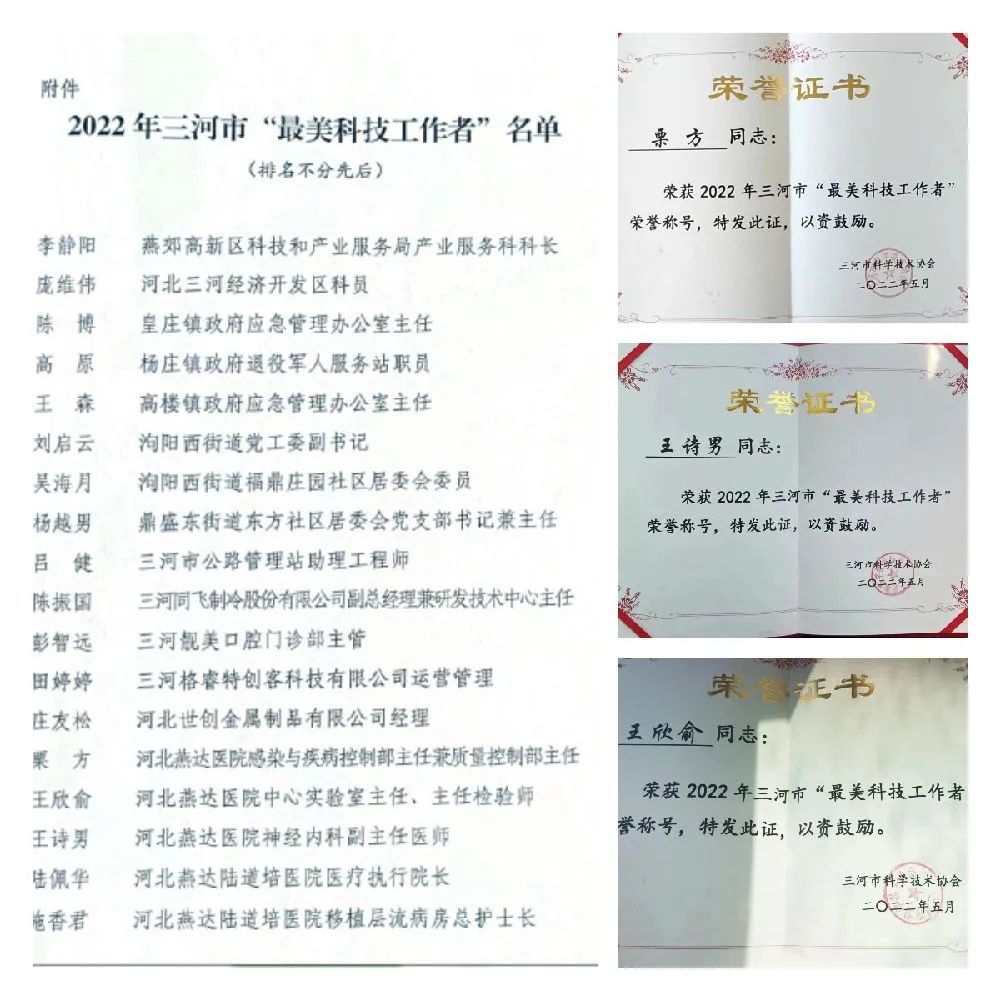 附件
2022年三河市“最美科技工作者”名单
（排名不分先后）
李静阳 燕郊高新区科技和产业服务局产业服务科科长
庞维伟 河北三河经济开发区科员
陈 博 皇庄镇政府应急管理办公室主任
高 原 杨庄镇政府退役军人服务站职员
王 森 高楼镇政府应急管理办公室主任
刘启云 泃阳西街道党工委副书记
吴海月 泃阳西街道福鼎庄园社区居委会委员
杨越男 鼎盛东街道东方社区居委会党支部书记兼主任
吕 健 三河市公路管理站助理工程师
陈振国 三河同飞制冷股份有限公司副总经理兼研发技术中心主任
彭智远 三河靓美口腔门诊部主管
田婷婷 三河格睿特创客科技有限公司运营管理
庄友松 河北世创金属制品有限公司经理
栗 方 河北燕达医院感染与疾病控制部主任兼质量控制部主任
王欣俞 河北燕达医院中心实验室主任、主任检验师
王诗男 河北燕达医院神经内科副主任医师
陆佩华 河北燕达陆道培医院医疗执行院长
施香君 河北燕达陆道培医院移植层流病房总护士长
荣誉证书
栗 方 同志：
荣获2022年三河市“最美科技工作者”
荣誉称号，特发此证，以资鼓励。
三河市科学技术协会
二〇二二年五月
荣誉证书
王诗男 同志：
荣获2022年三河市“最美科技工作者”
荣誉称号，特发此证，以资鼓励。
三河市科学技术协会
二〇二二年五月
荣誉证书
王欣俞 同志：
荣获2022年三河市“最美科技工作者
誉称号，特发此证，以资鼓励。
三河市科学技术协会
二〇二二年五月